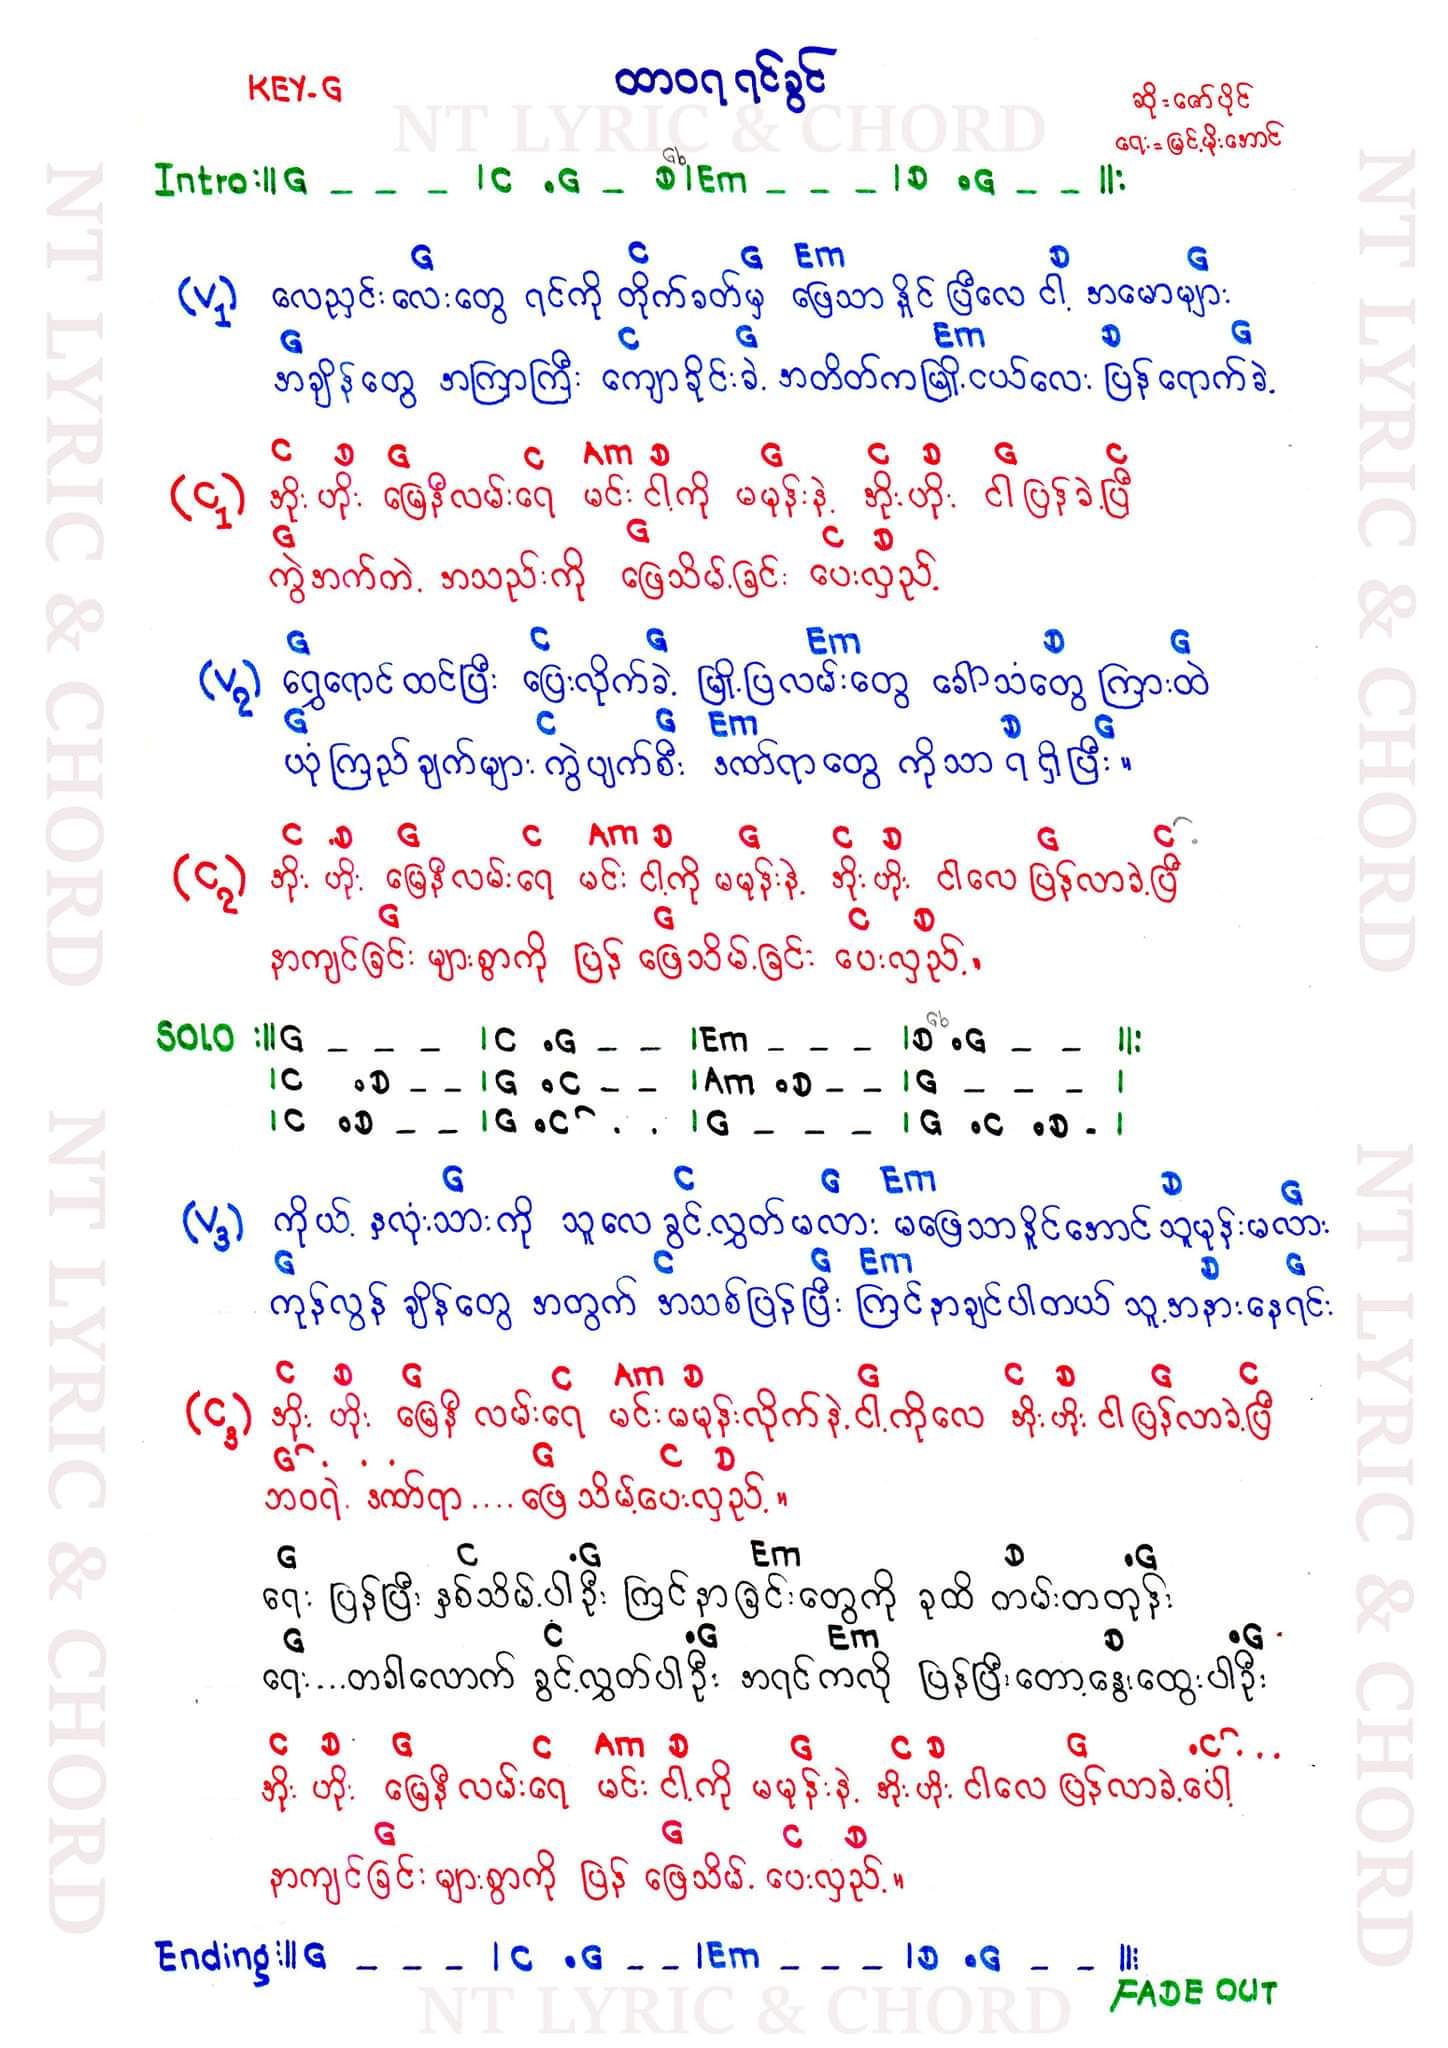 KEY-G
ထာဝရ ရင်ခွင်
ဆို = ဇော်ပိုင်
ရေး = မြင့်မိုးအောင်
NT LYRIC & CHORD
Intro :|| G _ _ _ | C .G _ D Gb | Em _ _ _ | D .G _ _ ||:
G C G Em D G
(V1) လေညှင်းလေးတွေ ရင်ကို တိုက်ခတ်မှ ဖြေသာနိုင်ပြီလေ ငါ့ အမောများ
G C G Em D G
အချိန်တွေ အကြာကြီး ကျောခိုင်းခဲ့ အတိတ်ကမြို့ငယ်လေး ပြန်ရောက်ခဲ့
C D G C Am D G C D G C
(C1) အိုး ဟိုး မြေနီလမ်းရေ မင်း ငါ့ကို မမုန်းနဲ့ အိုးဟိုး ငါပြန်ခဲ့ပြီ
G G C D
ကွဲအက်တဲ့ အသည်းကို ဖြေသိမ့်ခြင်း ပေးလှည့်
G C G Em D G
(V2) ရွှေရောင်ထင်ပြီး ပြေးလိုက်ခဲ့ မြို့ပြလမ်းတွေ ခေါ်သံတွေကြားထဲ
G C G Em D G
ယုံကြည်ချက်များ ကွဲပျက်စီး ဒဏ်ရာတွေ ကိုသာ ရရှိပြီး။
C .D G C Am D G C D G C
(C2) အိုး ဟိုး မြေနီလမ်းရေ မင်း ငါ့ကို မမုန်းနဲ့ အိုးဟိုး ငါလေ ပြန်လာခဲ့ပြီ
G G C D
နာကျင်ခြင်း များစွာကို ပြန် ဖြေသိမ့်ခြင်း ပေးလှည့်။
SOLO :|| G _ _ _ | C .G _ _ | Em _ _ _ | D Gb .G _ _ ||:
| C .D _ _ | G .C _ _ | Am .D _ _ | G _ _ _ |
| C .D _ _ | G .C . . | G _ _ _ | G .C .D - |
G C G Em D G
(V3) ကိုယ့် နှလုံးသားကို သူလေ ခွင့်လွှတ်မလား မဖြေသာနိုင်အောင်သူမုန်းမလား
G C G Em D G
ကုန်လွန် ချိန်တွေ အတွက် အသစ်ပြန်ပြီး ကြင်နာချင်ပါတယ် သူ့အနားနေရင်း
C D G C Am D G C D G C
(C3) အိုး ဟိုး မြေနီ လမ်းရေ မင်းမမုန်းလိုက်နဲ့ ငါ့ကိုလေ အိုးဟိုး ငါပြန်လာခဲ့ပြီ
G . . . G C D
ဘဝရဲ့ ဒဏ်ရာ .... ဖြေသိမ့်ပေးလှည့်။
G C .G Em D .G
ရေး ပြန်ပြီး နှစ်သိမ့်ပါဦး ကြင်နာခြင်းတွေကို ခုထိ တမ်းတတုန်း
G C .G Em D .G
ရေး...တခါလောက် ခွင့်လွှတ်ပါဦး အရင်ကလို ပြန်ပြီးတော့နွေးထွေးပါဦး
C D G C Am D G C D G .C ...
အိုး ဟိုး မြေနီလမ်းရေ မင်း ငါ့ကို မမုန်းနဲ့ အိုးဟိုး ငါလေ ပြန်လာခဲ့ပေါ့
G G C D
နာကျင်ခြင်း များစွာကို ပြန် ဖြေသိမ့် ပေးလှည့်။
Ending :|| G _ _ _ | C .G _ _ | Em _ _ _ | D .G _ _ ||:
FADE OUT
NT LYRIC & CHORD
NT LYRIC & CHORD
NT LYRIC & CHORD
NT LYRIC & CHORD
NT LYRIC & CHORD